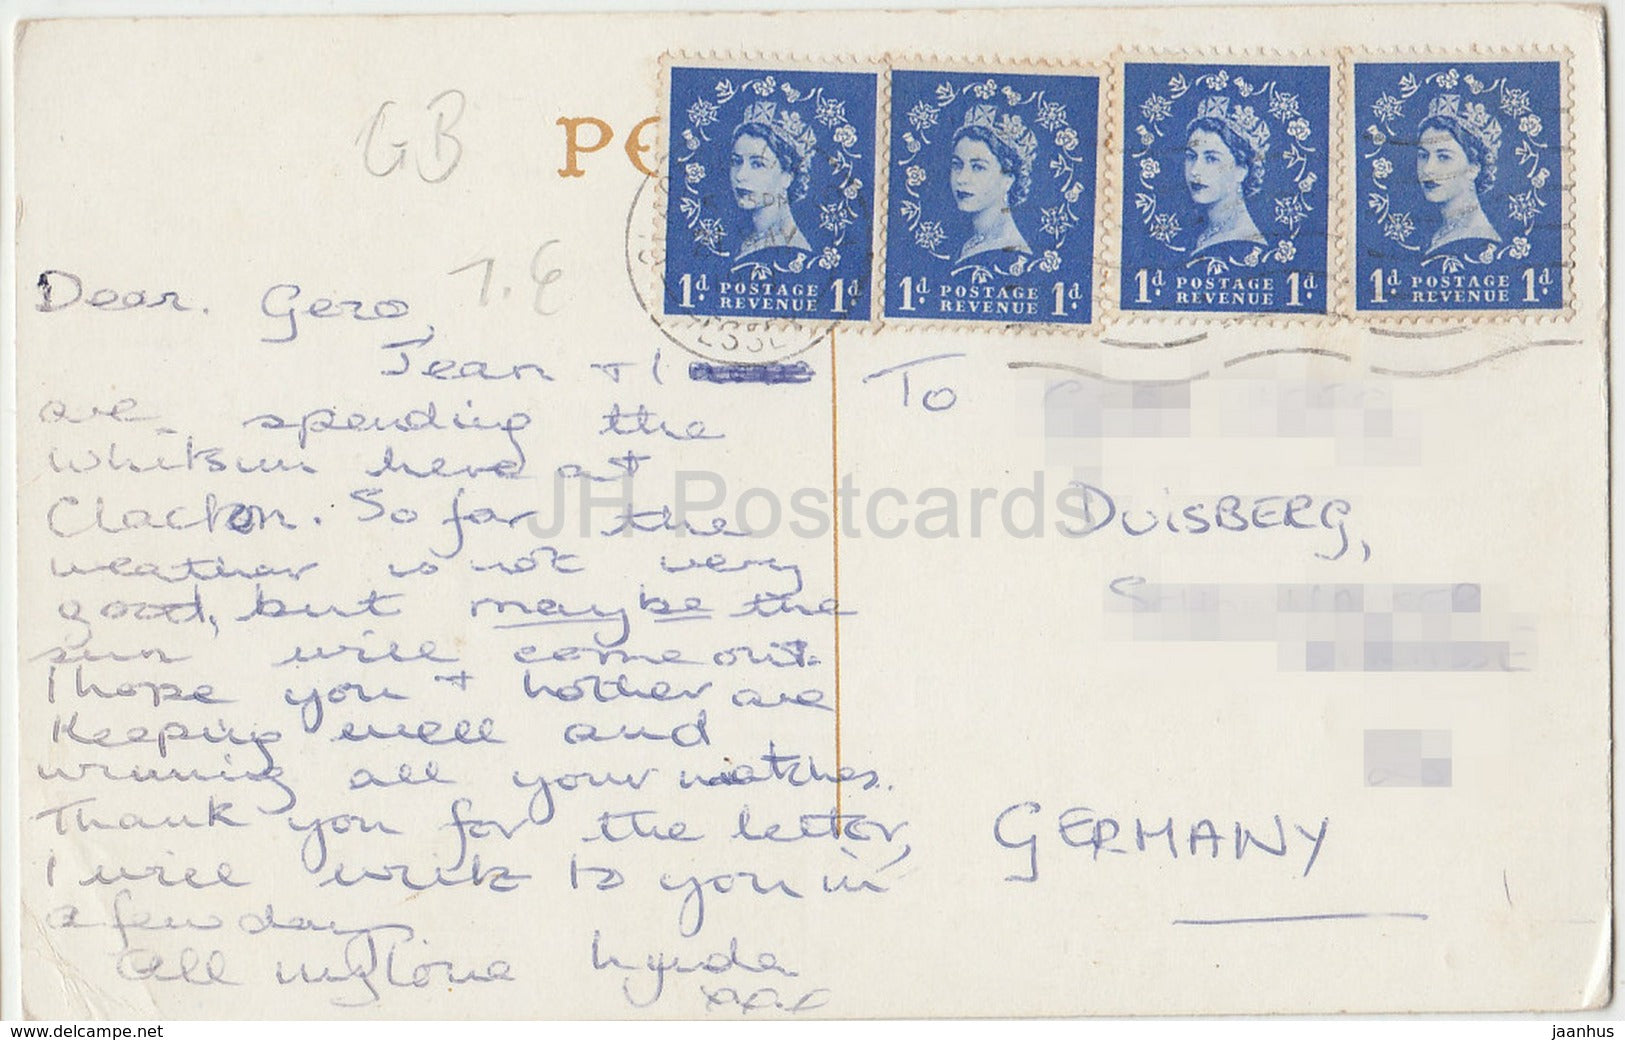 GB
PO
1.€
Dear. Gero,
Jean + I
are spending the
Whitsun here at
Clacton. So far the
weather is not very
good, but maybe the
sun will come out.
I hope you + mother are
Keeping well and
winning all your matches.
Thank you for the letter,
I will write to you in
a few days
All my love Lynda
xxxx
1d POSTAGE REVENUE 1d
1d POSTAGE REVENUE 1d
1d POSTAGE REVENUE 1d
1d POSTAGE REVENUE 1d
To
DUISBERG,
GERMANY
JH Postcards
www.delcampe.net
jaanhus